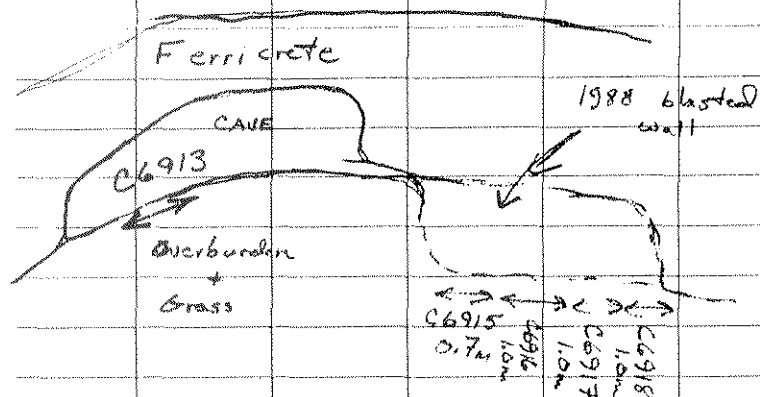 Ferricrete
1988 blasted
wall
CAVE
C6913
Overburden
+
Grass
C6915
0.7m
C6916
1.0m
C6917
1.0m
C6918
1.0m